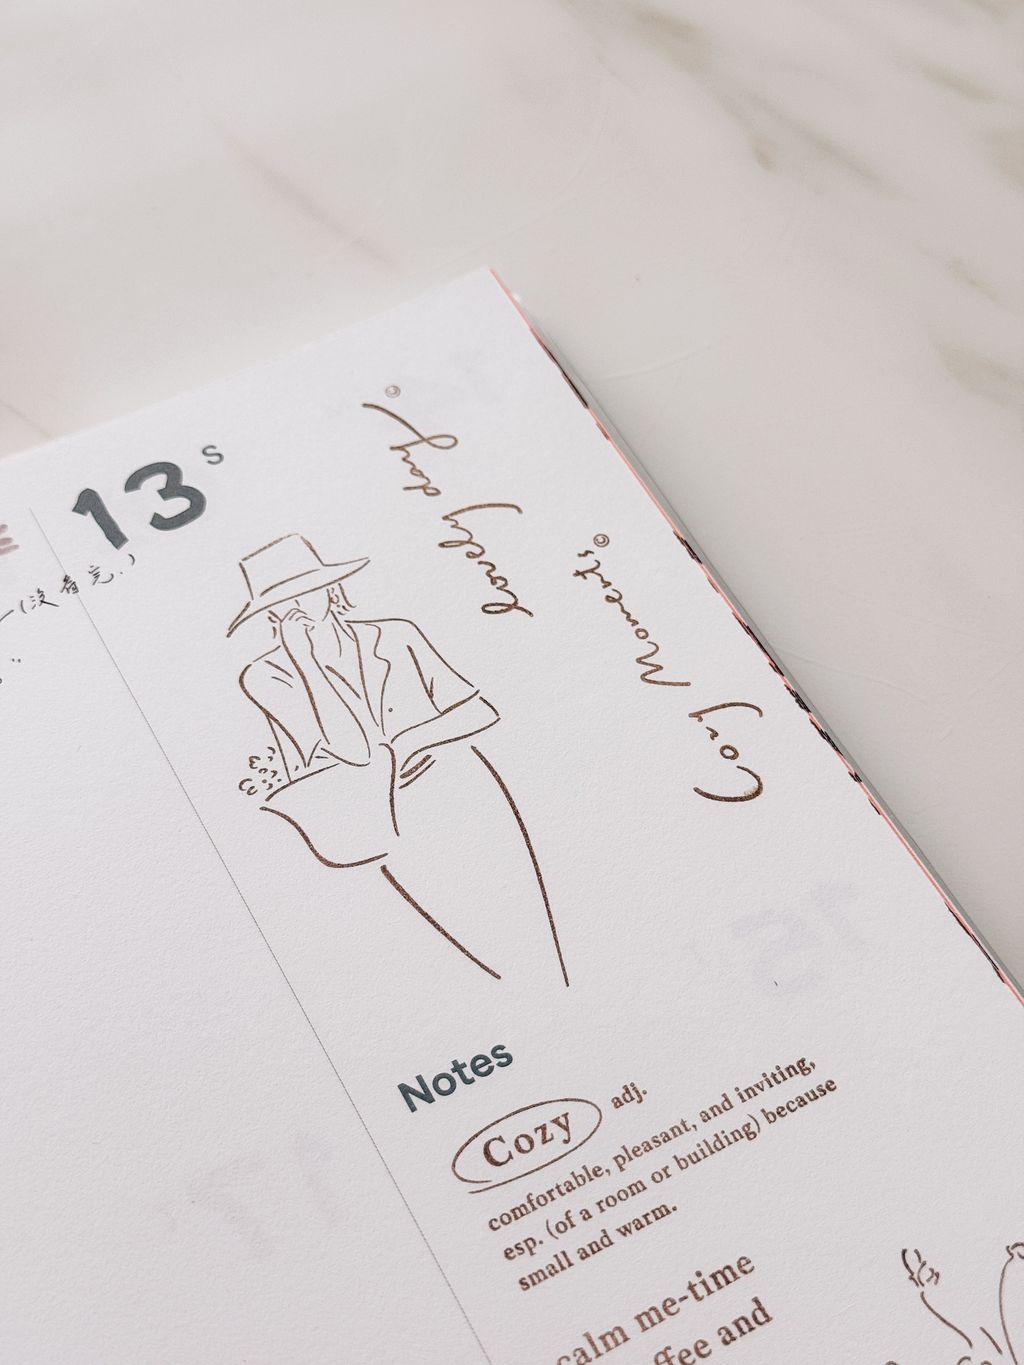 13 S
(沒看完.)
Lovely day!
Cozy Moments
Notes
Cozy adj.
comfortable, pleasant, and inviting,
esp. (of a room or building) because
small and warm.
calm me-time
and